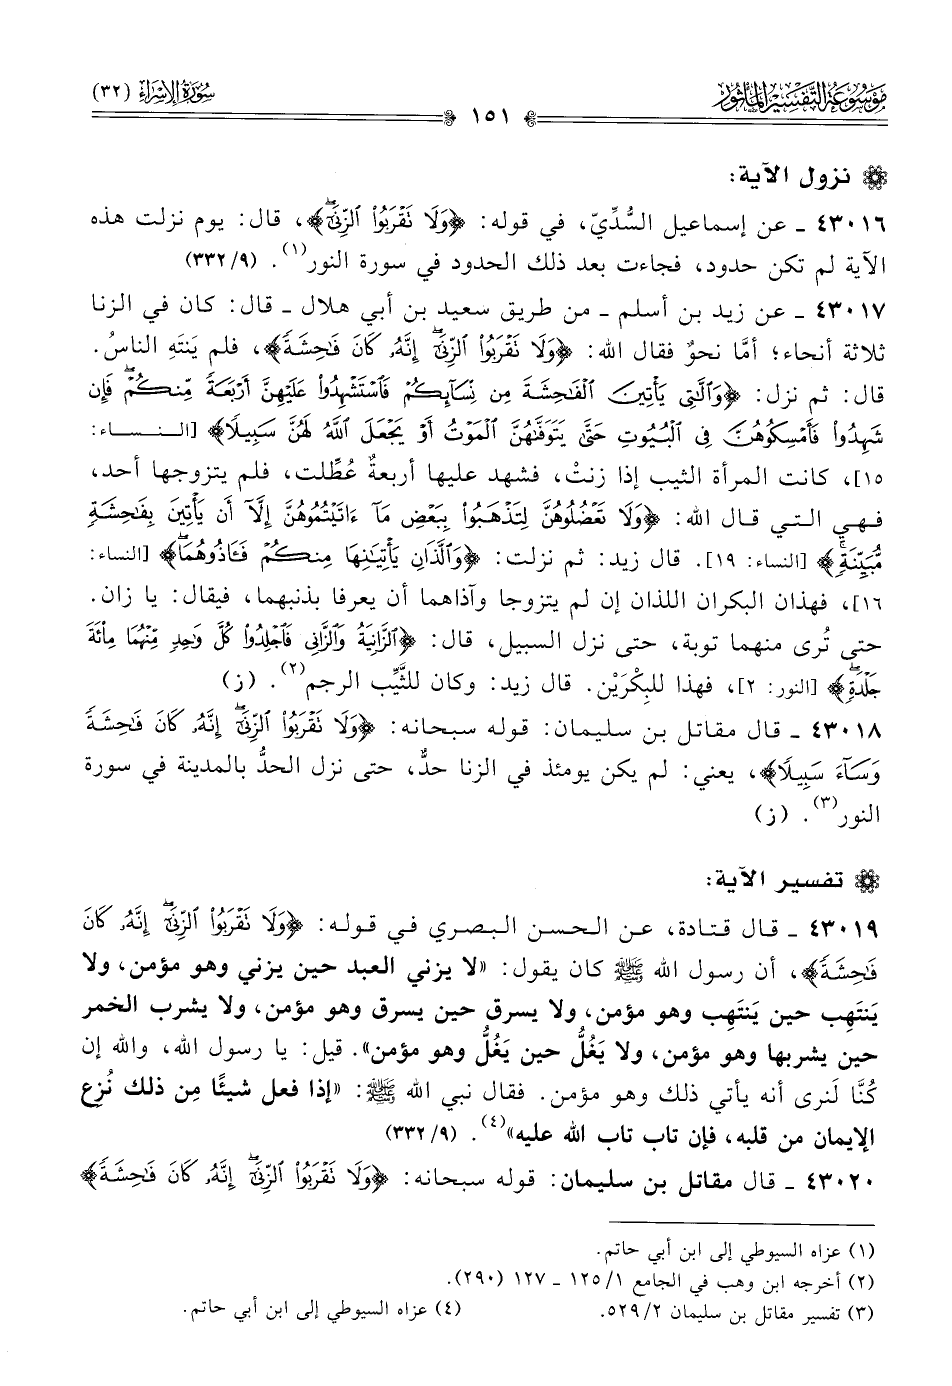 موسوعة التفسير المأثور
سورة الإسراء (٣٢)
١٥١
نزول الآية:
٤٣٠١٦ ـ عن إسماعيل السُّدِّيّ، في قوله: ﴿وَلَا نَقْرَبُوا۟ ٱلزِّنَىٰٓ﴾، قال: يوم نزلت هذه
الآية لم تكن حدود، فجاءت بعد ذلك الحدود في سورة النور(١). (٩/٣٣٢)
٤٣٠١٧ ـ عن زيد بن أسلم ـ من طريق سعيد بن أبي هلال ـ قال: كان في الزنا
ثلاثة أنحاء؛ أمَّا نحوٌ فقال الله: ﴿وَلَا نَقْرَبُوا۟ ٱلزِّنَىٰٓ إِنَّهُۥ كَانَ فَـٰحِشَةً﴾، فلم يَنتَهِ الناسُ.
قال: ثم نزل: ﴿وَٱلَّـٰتِى يَأْتِينَ ٱلْفَـٰحِشَةَ مِن نِّسَآئِكُمْ فَٱسْتَشْهِدُوا۟ عَلَيْهِنَّ أَرْبَعَةً مِّنكُمْ فَإِن
شَهِدُوا۟ فَأَمْسِكُوهُنَّ فِى ٱلْبُيُوتِ حَتَّىٰ يَتَوَفَّىٰهُنَّ ٱلْمَوْتُ أَوْ يَجْعَلَ ٱللَّهُ لَهُنَّ سَبِيلًا﴾ [النساء:
١٥]، كانت المرأة الثيب إذا زنتْ، فشهد عليها أربعةٌ عُطِّلت، فلم يتزوجها أحد،
فهي التي قال الله: ﴿وَلَا تَعْضُلُوهُنَّ لِتَذْهَبُوا۟ بِبَعْضِ مَآ ءَاتَيْتُمُوهُنَّ إِلَّآ أَن يَأْتِينَ بِفَـٰحِشَةٍ
مُّبَيِّنَةٍ﴾ [النساء: ١٩]. قال زيد: ثم نزلت: ﴿وَٱلَّذَانِ يَأْتِيَـٰنِهَا مِنكُمْ فَـَٔاذُوهُمَا﴾ [النساء:
١٦]، فهذان البكران اللذان إن لم يتزوجا وآذاهما أن يعرفا بذنبهما، فيقال: يا زان.
حتى تُرى منهما توبة، حتى نزل السبيل، قال: ﴿ٱلزَّانِيَةُ وَٱلزَّانِى فَٱجْلِدُوا۟ كُلَّ وَٰحِدٍ مِّنْهُمَا مِا۟ئَةَ
جَلْدَةٍ﴾ [النور: ٢]، فهذا للبِكْرَيْن. قال زيد: وكان للثَّيِّب الرجم(٢). (ز)
٤٣٠١٨ ـ قال مقاتل بن سليمان: قوله سبحانه: ﴿وَلَا نَقْرَبُوا۟ ٱلزِّنَىٰٓ إِنَّهُۥ كَانَ فَـٰحِشَةً
وَسَآءَ سَبِيلًا﴾، يعني: لم يكن يومئذ في الزنا حدٌّ، حتى نزل الحدُّ بالمدينة في سورة
النور(٣). (ز)
تفسير الآية:
٤٣٠١٩ ـ قال قتادة، عن الحسن البصري في قوله: ﴿وَلَا نَقْرَبُوا۟ ٱلزِّنَىٰٓ إِنَّهُۥ كَانَ
فَـٰحِشَةً﴾، أن رسول الله ﷺ كان يقول: «لا يزني العبد حين يزني وهو مؤمن، ولا
يَنتَهِب حين يَنتَهِب وهو مؤمن، ولا يسرق حين يسرق وهو مؤمن، ولا يشرب الخمر
حين يشربها وهو مؤمن، ولا يَغُلُّ حين يَغُلُّ وهو مؤمن». قيل: يا رسول الله، والله إن
كُنَّا لَنرى أنه يأتي ذلك وهو مؤمن. فقال نبي الله ﷺ: «إذا فعل شيئًا مِن ذلك نُزِع
الإيمان من قلبه، فإن تاب تاب الله عليه»(٤). (٩/٣٣٢)
٤٣٠٢٠ ـ قال مقاتل بن سليمان: قوله سبحانه: ﴿وَلَا نَقْرَبُوا۟ ٱلزِّنَىٰٓ إِنَّهُۥ كَانَ فَـٰحِشَةً﴾
(١) عزاه السيوطي إلى ابن أبي حاتم.
(٢) أخرجه ابن وهب في الجامع ١/١٢٥ ـ ١٢٧ (٢٩٠).
(٣) تفسير مقاتل بن سليمان ٢/٥٢٩.
(٤) عزاه السيوطي إلى ابن أبي حاتم.